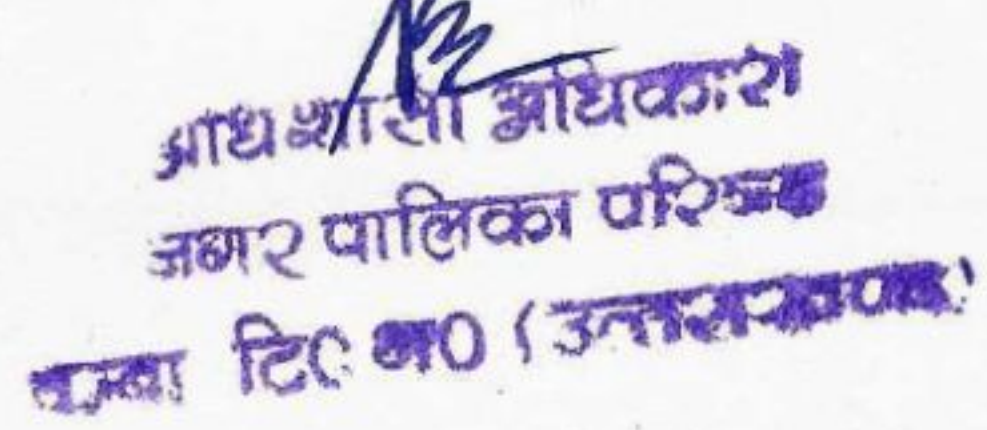 अधिशासी अधिकारी
नगर पालिका परिषद
चम्बा टि0 ग0 (उत्तराखण्ड)